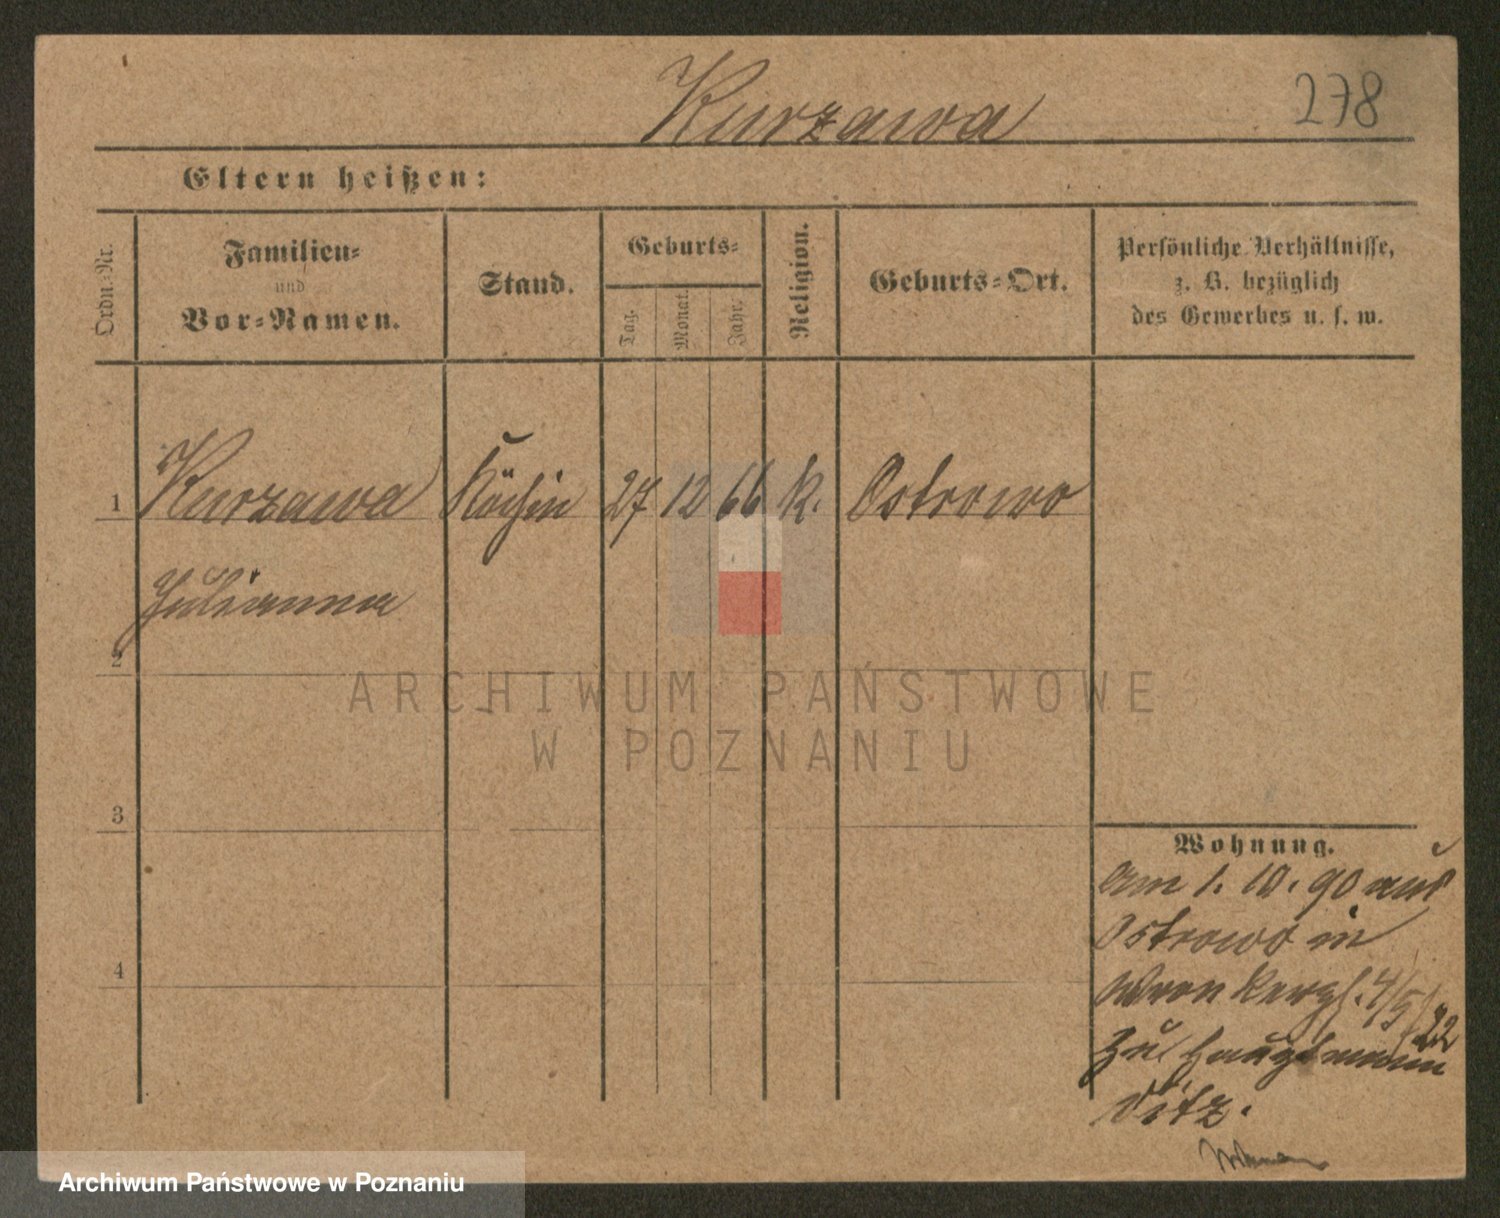 Kurzawa
278
Eltern heißen:
Ordn.-Nr.
Familien-
und
Vor-Namen.
Stand.
Geburts-
Tag.
Monat.
Jahr.
Religion.
Geburts-Ort.
Persönliche Verhältnisse,
z. B. bezüglich
des Gewerbes u. s. w.
1 Kurzawa Köchin 27 12 66 k. Ostrowo
Julianna
2
ARCHIWUM PAŃSTWOWE
W POZNANIU
3
Wohnung.
am 1. 10. 90 aus
Ostrowo in
4
22
zu Hauptmann
Archiwum Państwowe w Poznaniu